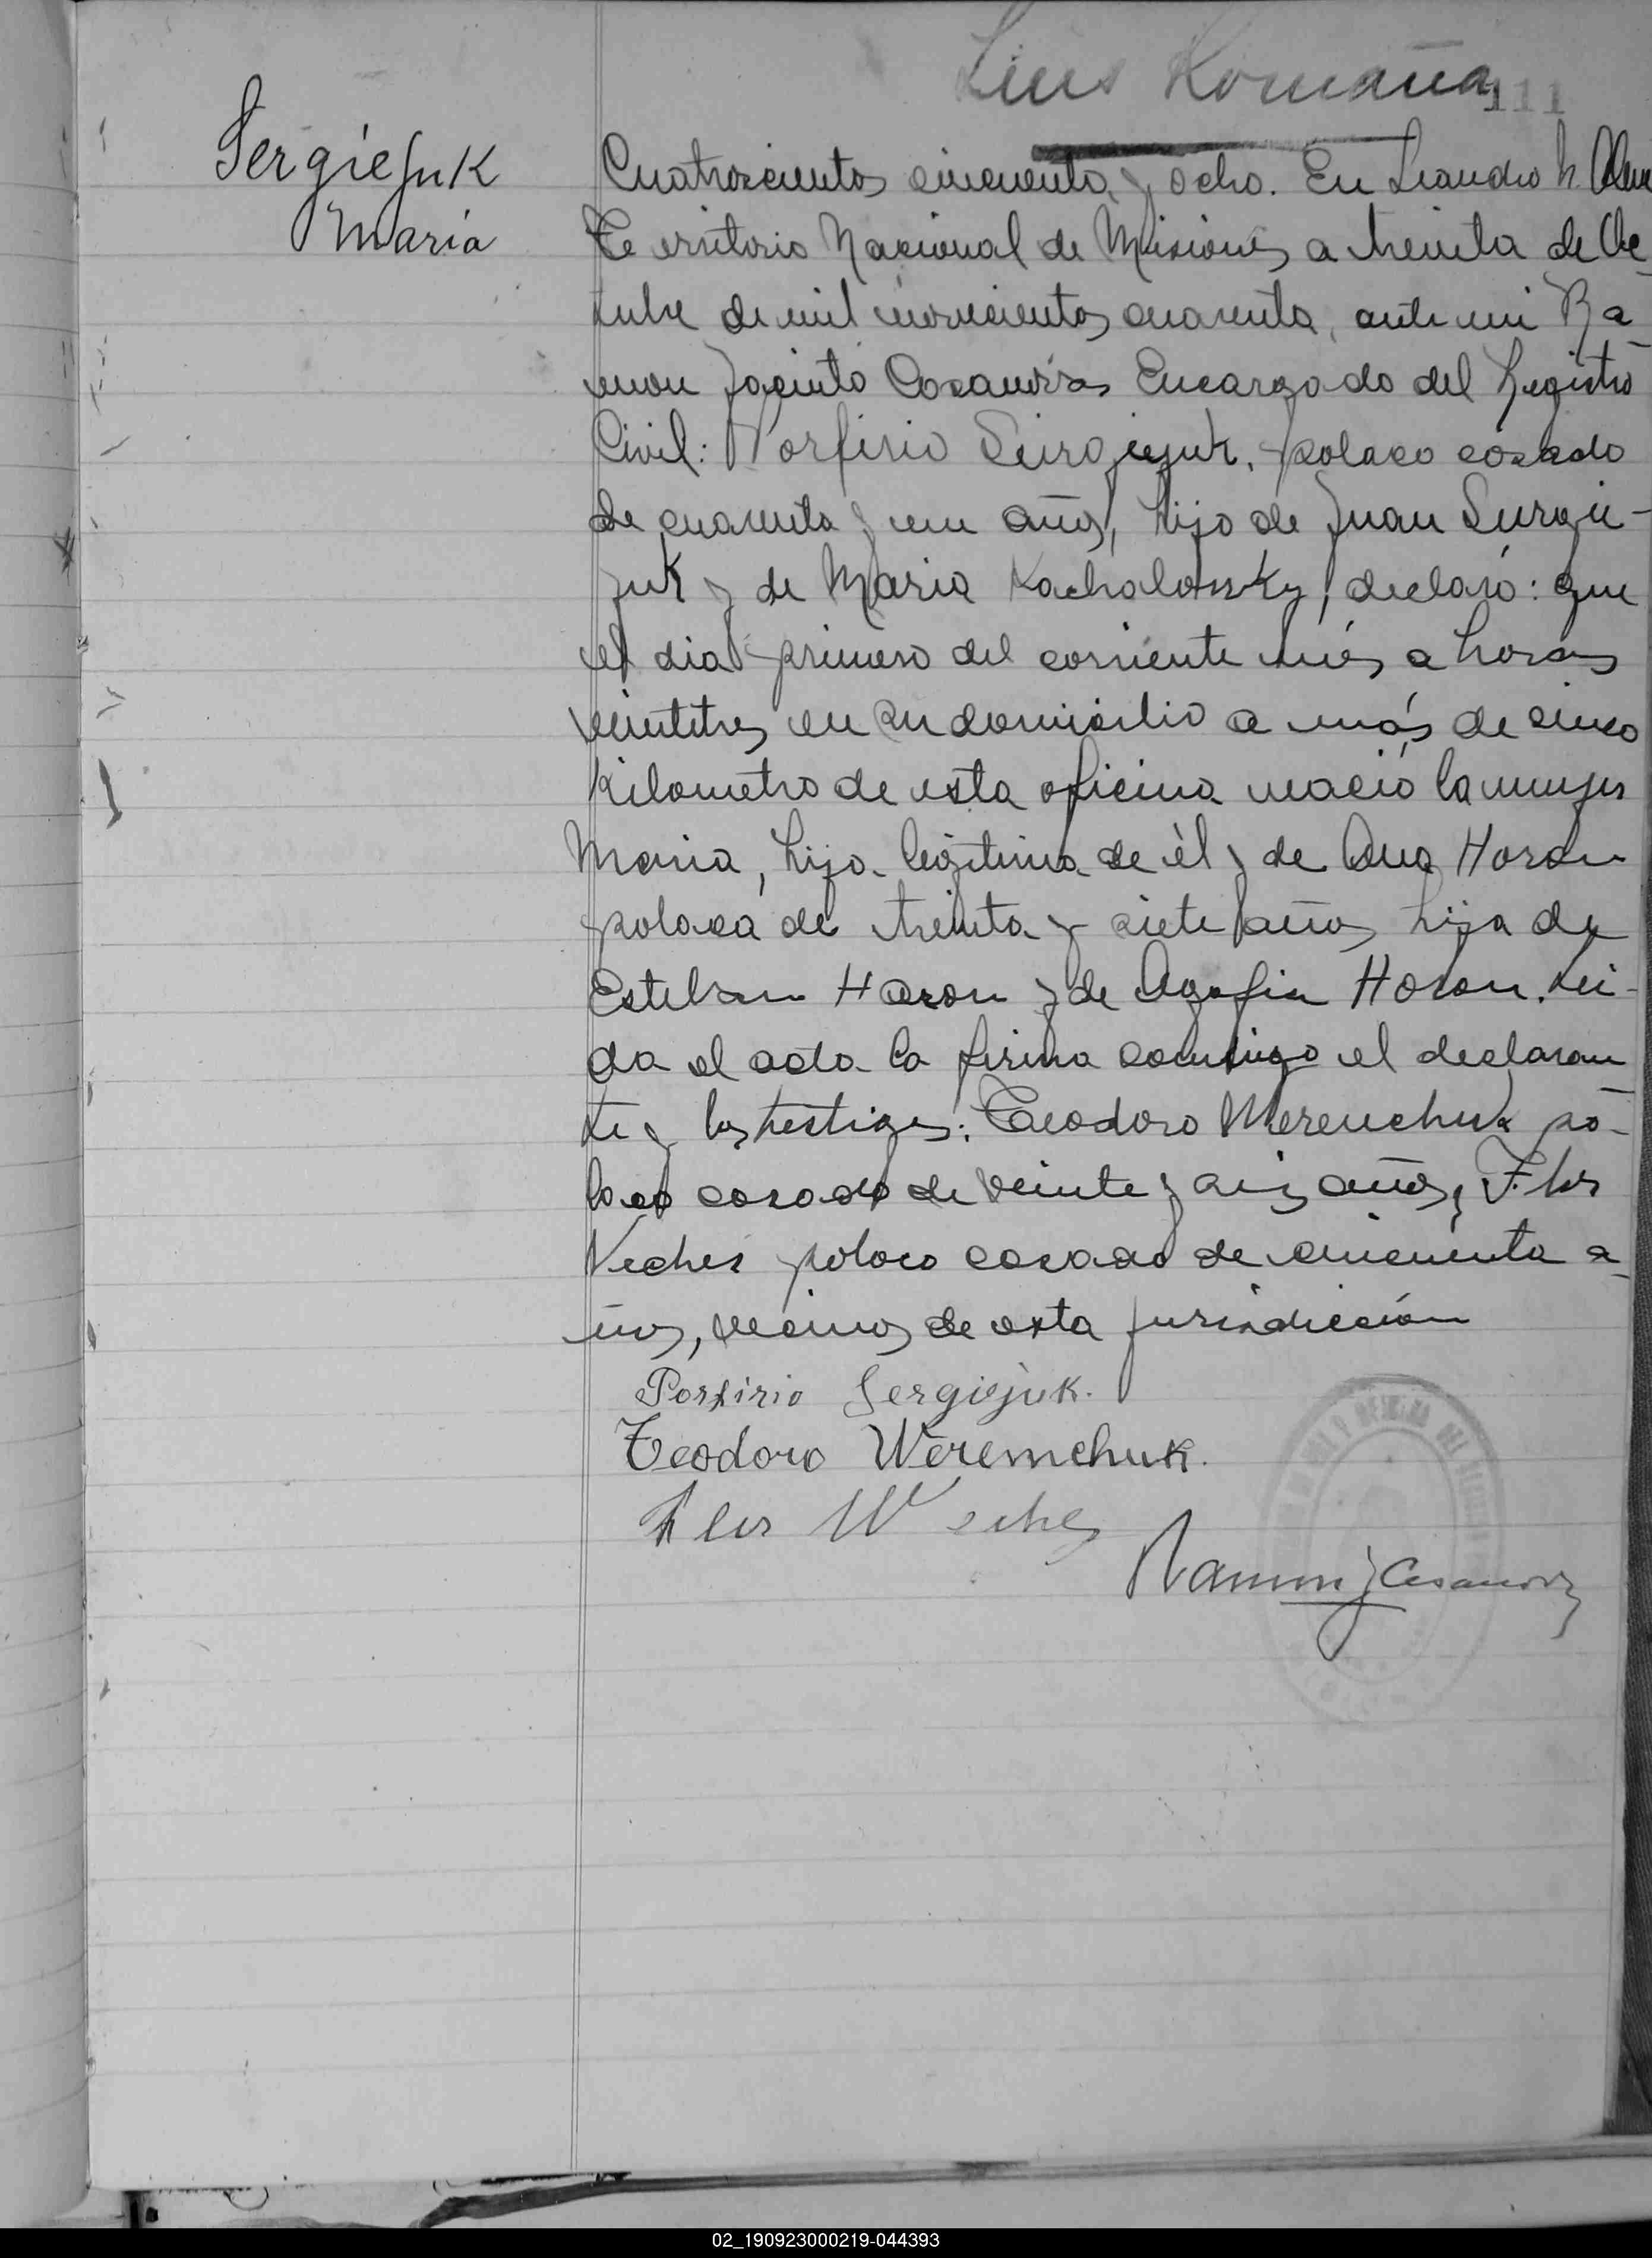 Luis Romaña
111
Sergiejuk
María
Cuatroscientos cincuenta y ocho. En Leandro N. Alem
Te erritorio Nacional de Misiones a treinta de Oc-
tubre de mil novecientos cuarenta, ante mi Ra-
mon Jacinto Casanovas Encargado del Registro
Civil: Porfirio Seirgiejuk, polaco casado
de cuarenta y un años, hijo de Juan Surgie-
juk y de Maria Kachalowsky, declaró: que
el dia primero del corriente més a horas
veintitres en su domicilio a más de cinco
kilometro de esta oficina nació la mujer
Maria, hija legitima de él y de Ana Horon
polaca de treinta y siete años hija de
Esteban Haron y de Agafia Horon. Lei-
da el acta la firma conmigo el declaran
te y los testigos: Teodoro Werenchuk po-
laco casado de veinte y seis años y Flor
Veches polaco casado de cincuenta a-
ños, vecinos de esta jurisdicción
Porfirio Sergiejuk.
Teodoro Weremchuk.
Flor Weches
Ramon J Casanovas
02_190923000219-044393